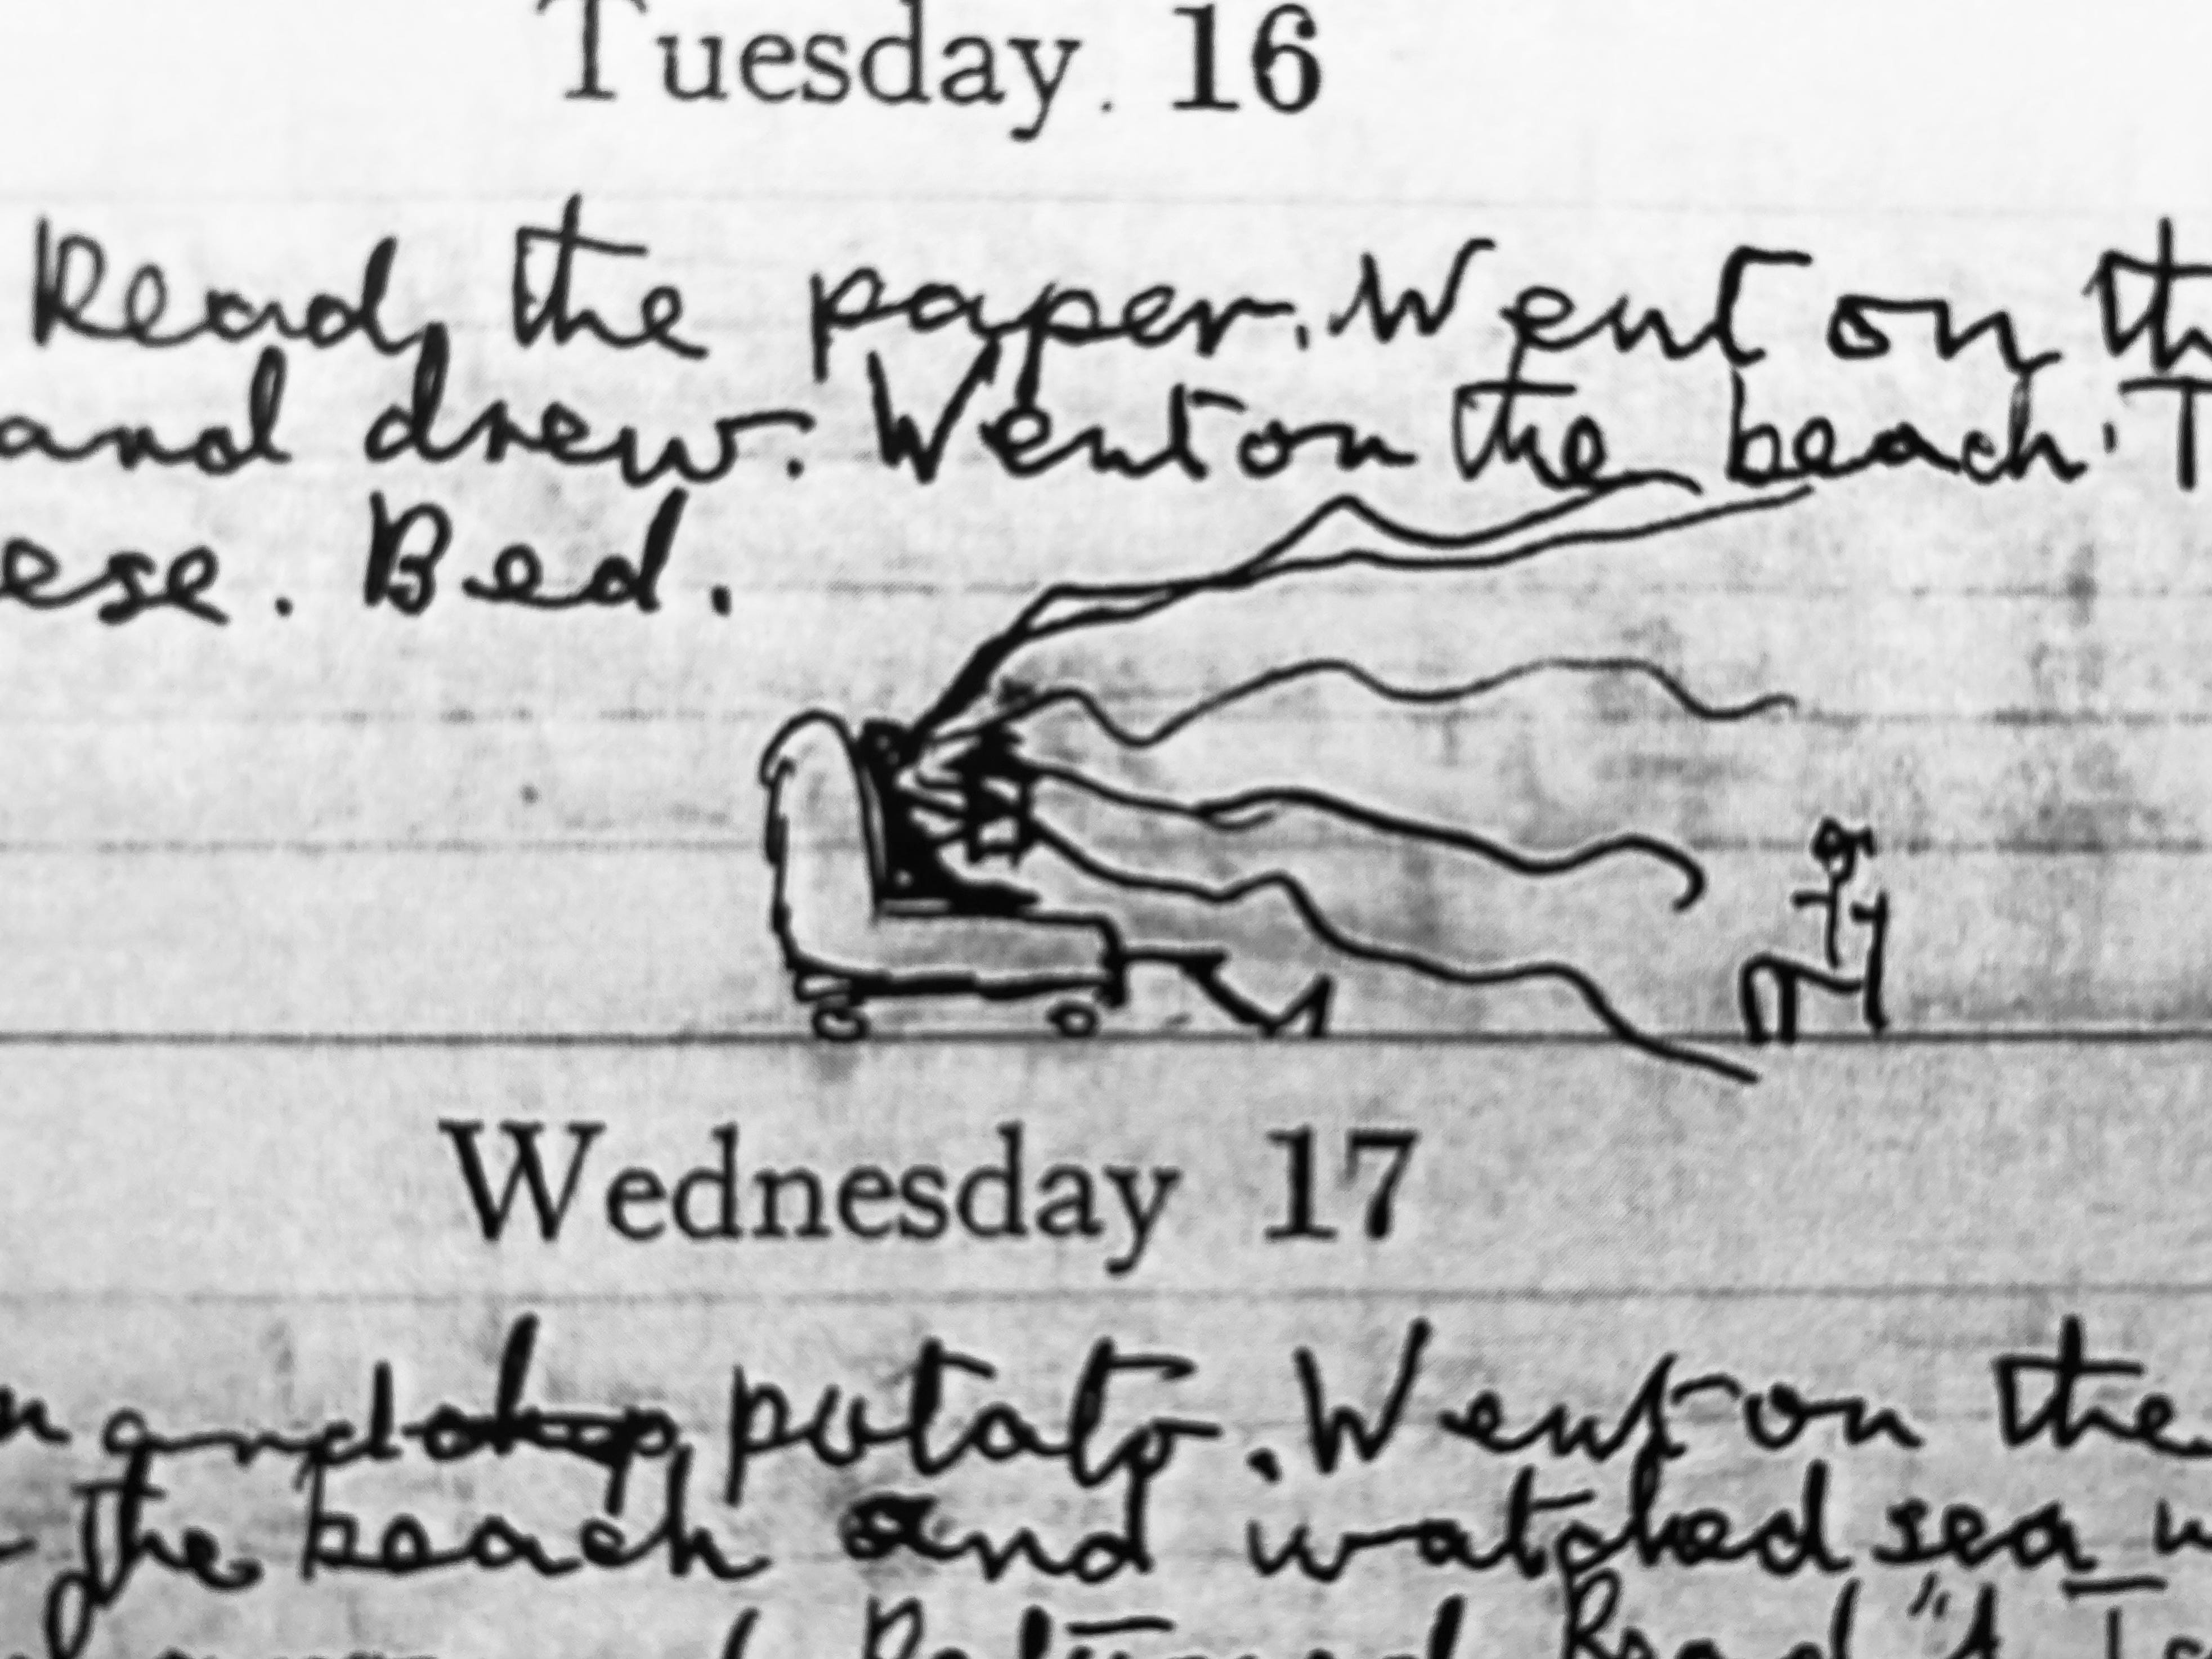 Tuesday. 16
Read the paper. Went on th
and drew. Went on the beach. T
ese. Bed.
Wednesday 17
n and potato. Went on the
the beach and watched sea
Read "A